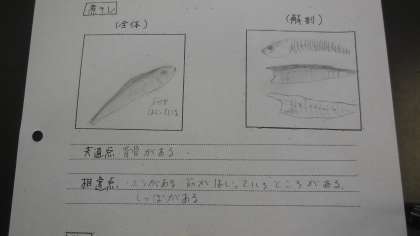 煮干し
(全体)
(解剖)
共通点 背骨がある
相違点 がある 筋がはしっているところがある。
しっぽがある